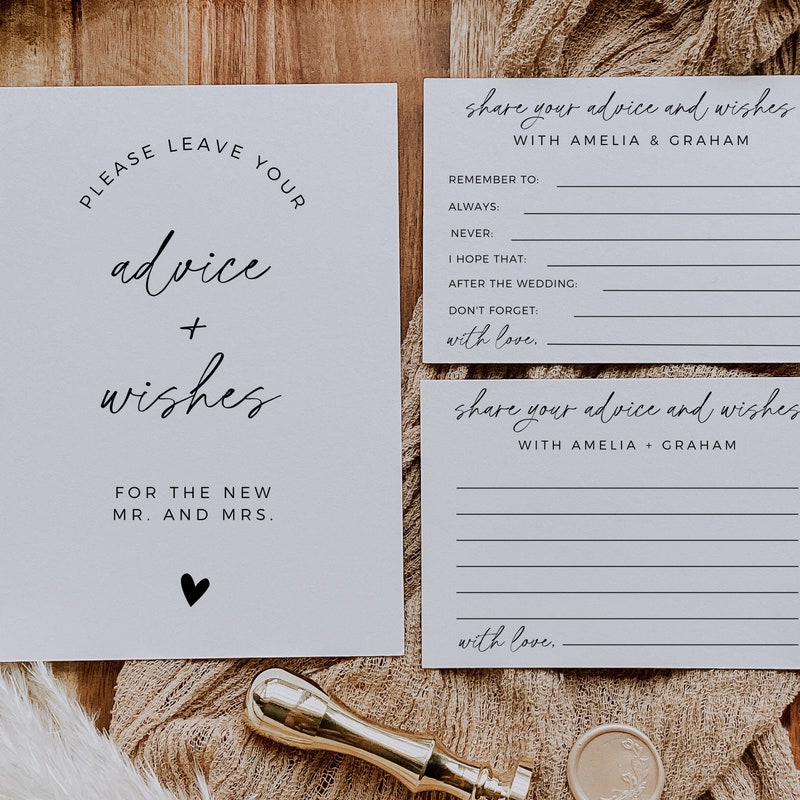 PLEASE LEAVE YOUR
advice
+
wishes
FOR THE NEW
MR. AND MRS.
share your advice and wishes
WITH AMELIA & GRAHAM
REMEMBER TO:
ALWAYS:
NEVER:
I HOPE THAT:
AFTER THE WEDDING:
DON'T FORGET:
with love,
share your advice and wishes
WITH AMELIA + GRAHAM
with love,